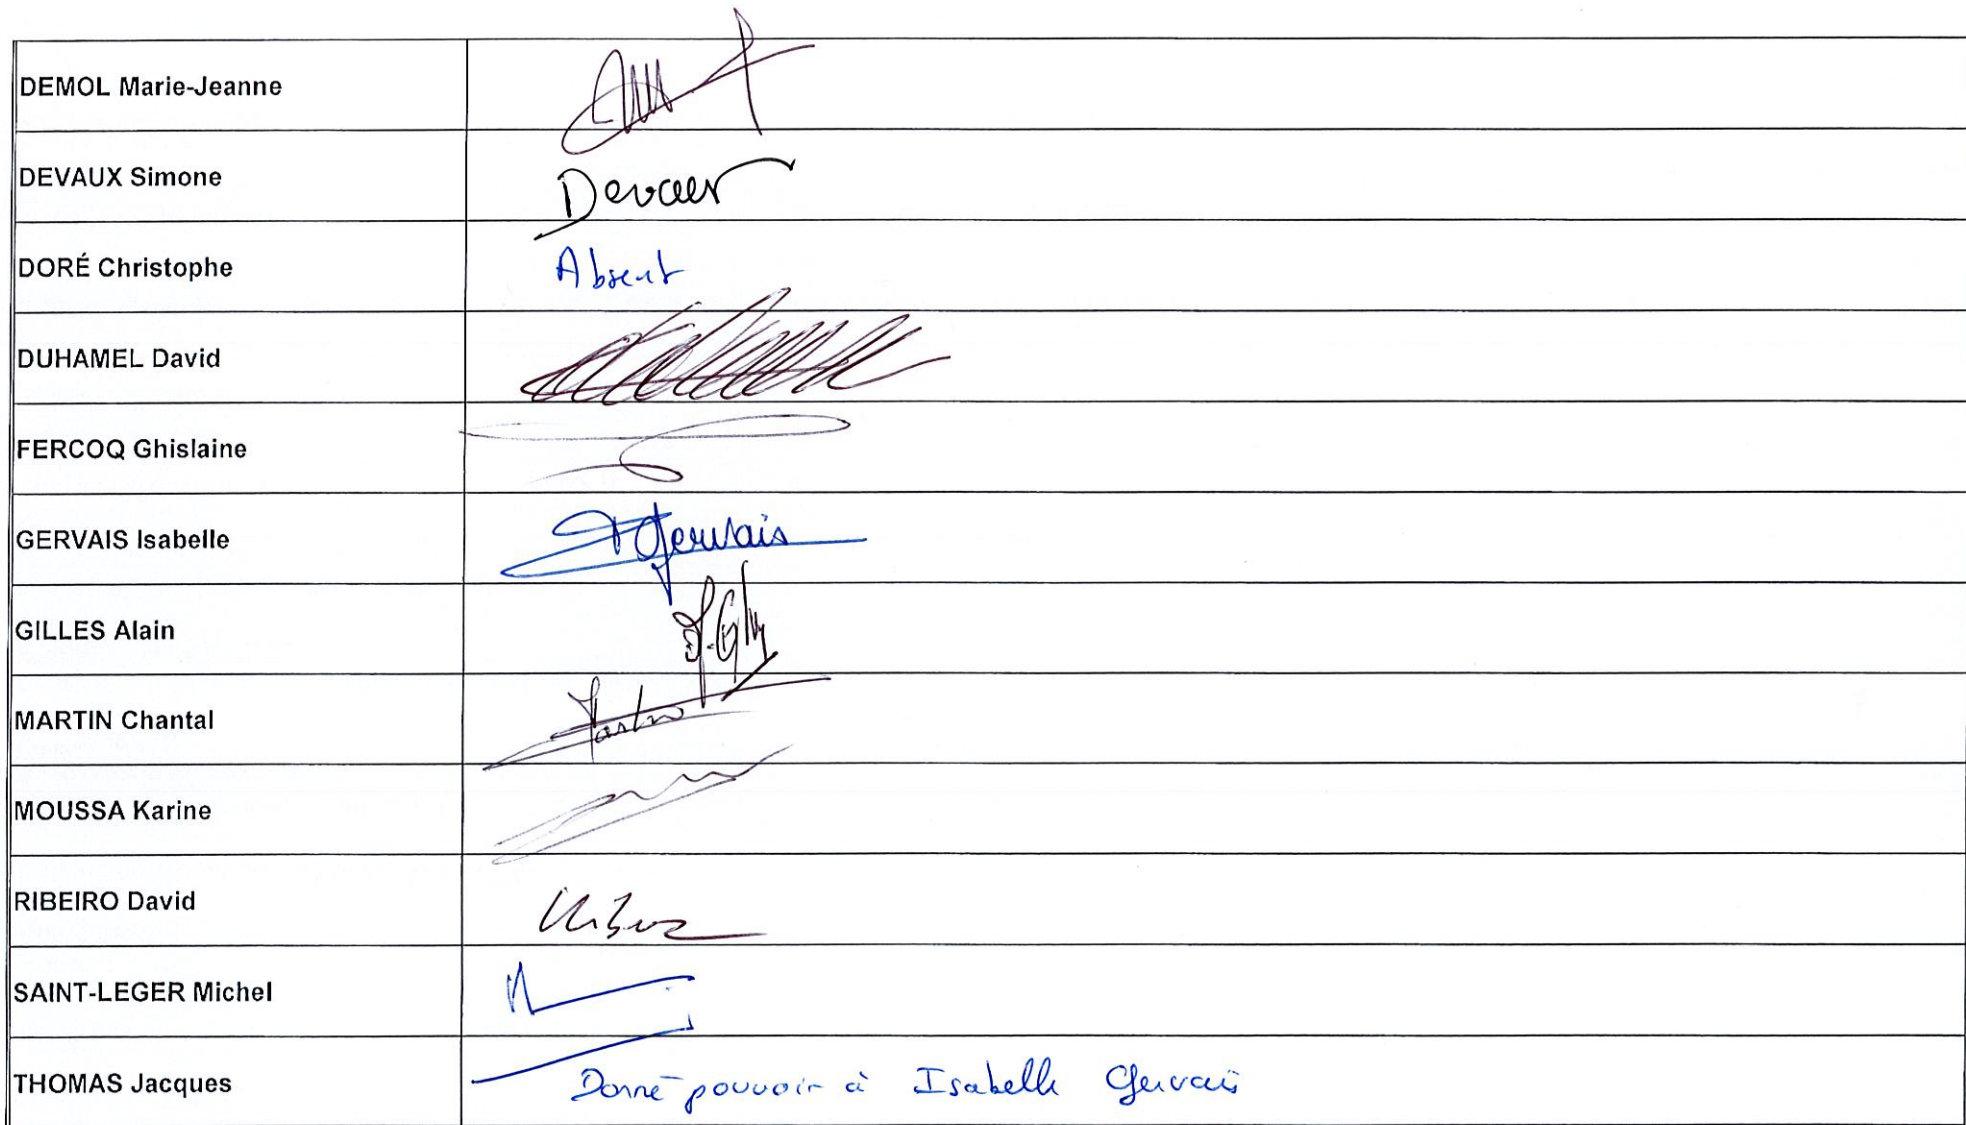 DEMOL Marie-Jeanne
DEVAUX Simone
DORÉ Christophe Absent
DUHAMEL David
FERCOQ Ghislaine
GERVAIS Isabelle Gervais
GILLES Alain
MARTIN Chantal
MOUSSA Karine
RIBEIRO David
SAINT-LEGER Michel
THOMAS Jacques Donne pouvoir à Isabelle Gervais